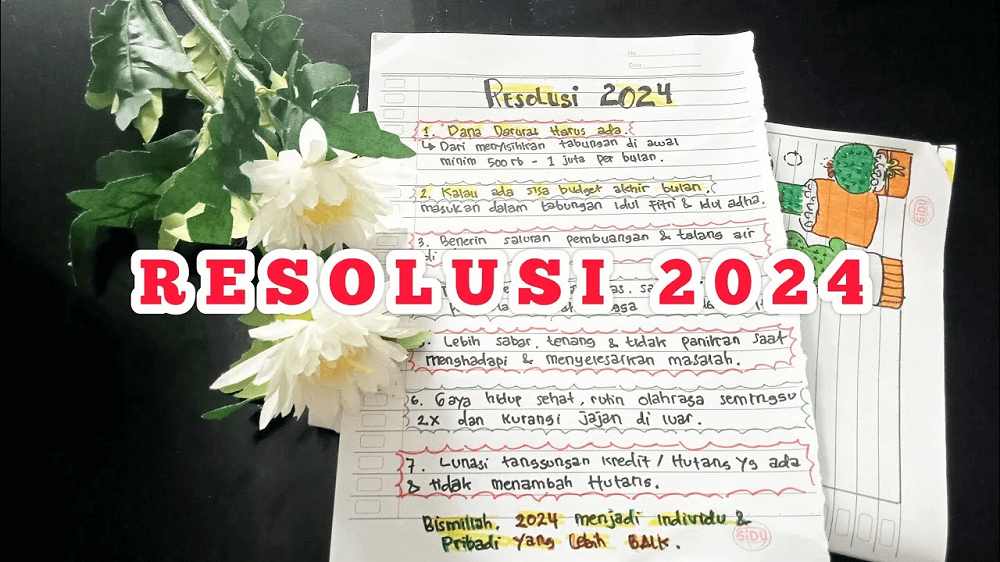 No.
Date.
Resolusi 2024
1. Dana Darurat Harus ada.
↳ Dari menyisihkan tabungan di awal
minim 500 rb - 1 juta per bulan.
2. Kalau ada sisa budget akhir bulan,
masukan dalam tabungan Idul Fitri & Idul adha.
3. Benerin saluran pembuangan & talang air
di
RESOLUSI 2024
Lebih sabar, tenang & tidak panikan saat
menghadapi & menyelesaikan masalah.
6. Gaya hidup sehat, rutin olahraga seminggu
2x dan kurangi jajan di luar.
7. Lunasi tanggungan kredit / Hutang yg ada
& tidak menambah Hutang.
Bismillah, 2024 menjadi individu &
Pribadi yang lebih BAIK.
SiDU
SiDU